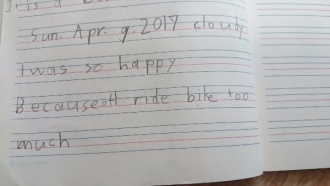 It is a
Sun. Apr. 9. 2017 cloudy
I was so happy
Because I ride bike too
much